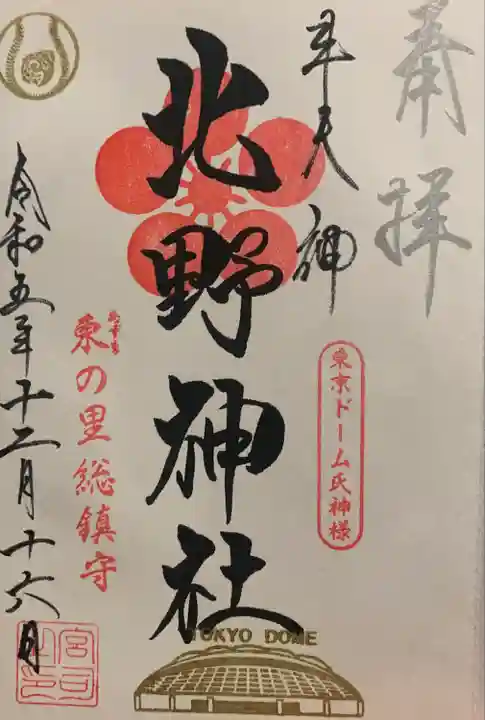 奉拝
牛天神
東京ドーム氏神様
北野神社
の里総鎮守
令和五年十二月十六日
宮司之印
TOKYO DOME